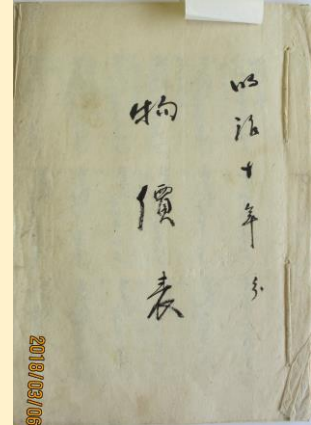 明治十年分
物價表
2018/03/06